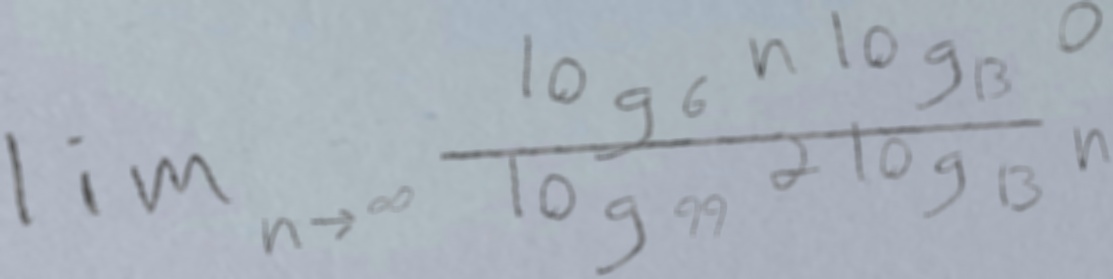 lim n→∞ log₆ n log₁₃ 0 / log₉₉ 2 log₁₃ n